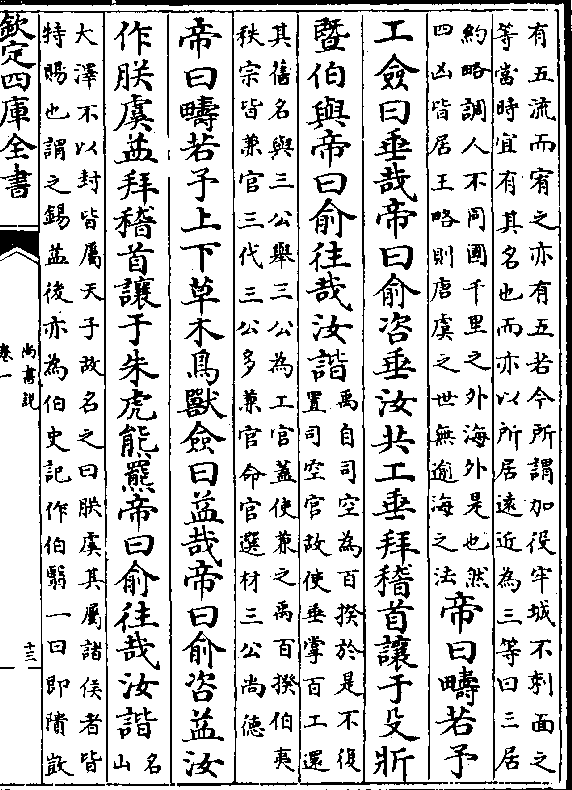 有五流而宥之亦有五若今所謂加役牢城不刺面之
等當時宜有其名也而亦以所居遠近為三等曰三居
約略調人不同國千里之外海外是也然
四凶皆居王略則唐虞之世無逾海之法
帝曰疇若予
工僉曰垂哉帝曰俞咨垂汝共工垂拜稽首讓于殳斨
暨伯與帝曰俞往哉汝諧
禹自司空為百揆於是不復
置司空官故使垂掌百工還
其舊名與三公舉三公為工官蓋使兼之禹百揆伯夷
秩宗皆兼官三代三公多兼官命官選材三公尚德
帝曰疇若予上下草木鳥獸僉曰益哉帝曰俞咨益汝
作朕虞益拜稽首讓于朱虎熊羆帝曰俞往哉汝諧
名
山
大澤不以封皆屬天子故名之曰朕虞其屬諸侯者皆
特賜也謂之錫益後亦為伯史記作伯翳一曰即隤敳
欽定四庫全書
尚書說
卷一
十三